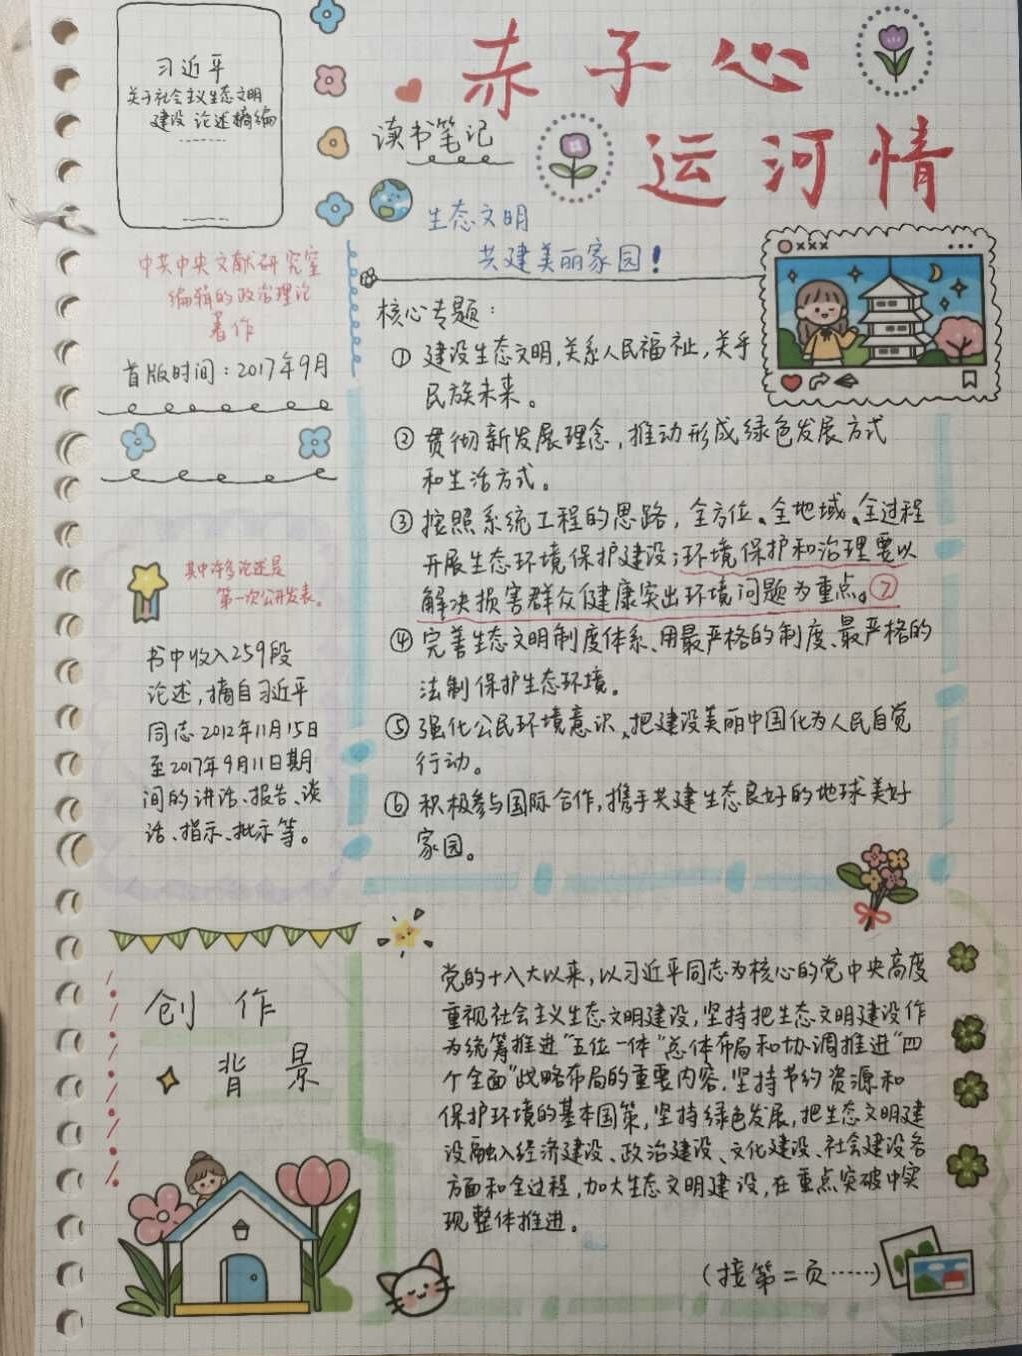 习近平
关于社会主义生态文明
建设 论述摘编
赤子心
运河情
读书笔记
生态文明
共建美丽家园！
中共中央文献研究室
编辑的政治理论
著作
首版时间：2017年9月
其中许多论述是
第一次公开发表。
书中收入259段
论述，摘自习近平
同志2012年11月15日
至2017年9月11日期
间的讲话、报告、谈
话、指示、批示等。
核心专题：
① 建设生态文明，关系人民福祉，关乎
民族未来。
② 贯彻新发展理念，推动形成绿色发展方式
和生活方式。
③ 按照系统工程的思路，全方位、全地域、全过程
开展生态环境保护建设；环境保护和治理要以
解决损害群众健康突出环境问题为重点。⑦
④ 完善生态文明制度体系、用最严格的制度、最严格的
法制保护生态环境。
⑤ 强化公民环境意识、把建设美丽中国化为人民自觉
行动。
⑥ 积极参与国际合作，携手共建生态良好的地球美好
家园。
创作
背景
党的十八大以来，以习近平同志为核心的党中央高度
重视社会主义生态文明建设，坚持把生态文明建设作
为统筹推进“五位一体”总体布局和协调推进“四
个全面”战略布局的重要内容，坚持节约资源和
保护环境的基本国策，坚持绿色发展，把生态文明建
设融入经济建设、政治建设、文化建设、社会建设各
方面和全过程，加大生态文明建设，在重点突破中实
现整体推进。
（接第二页……）